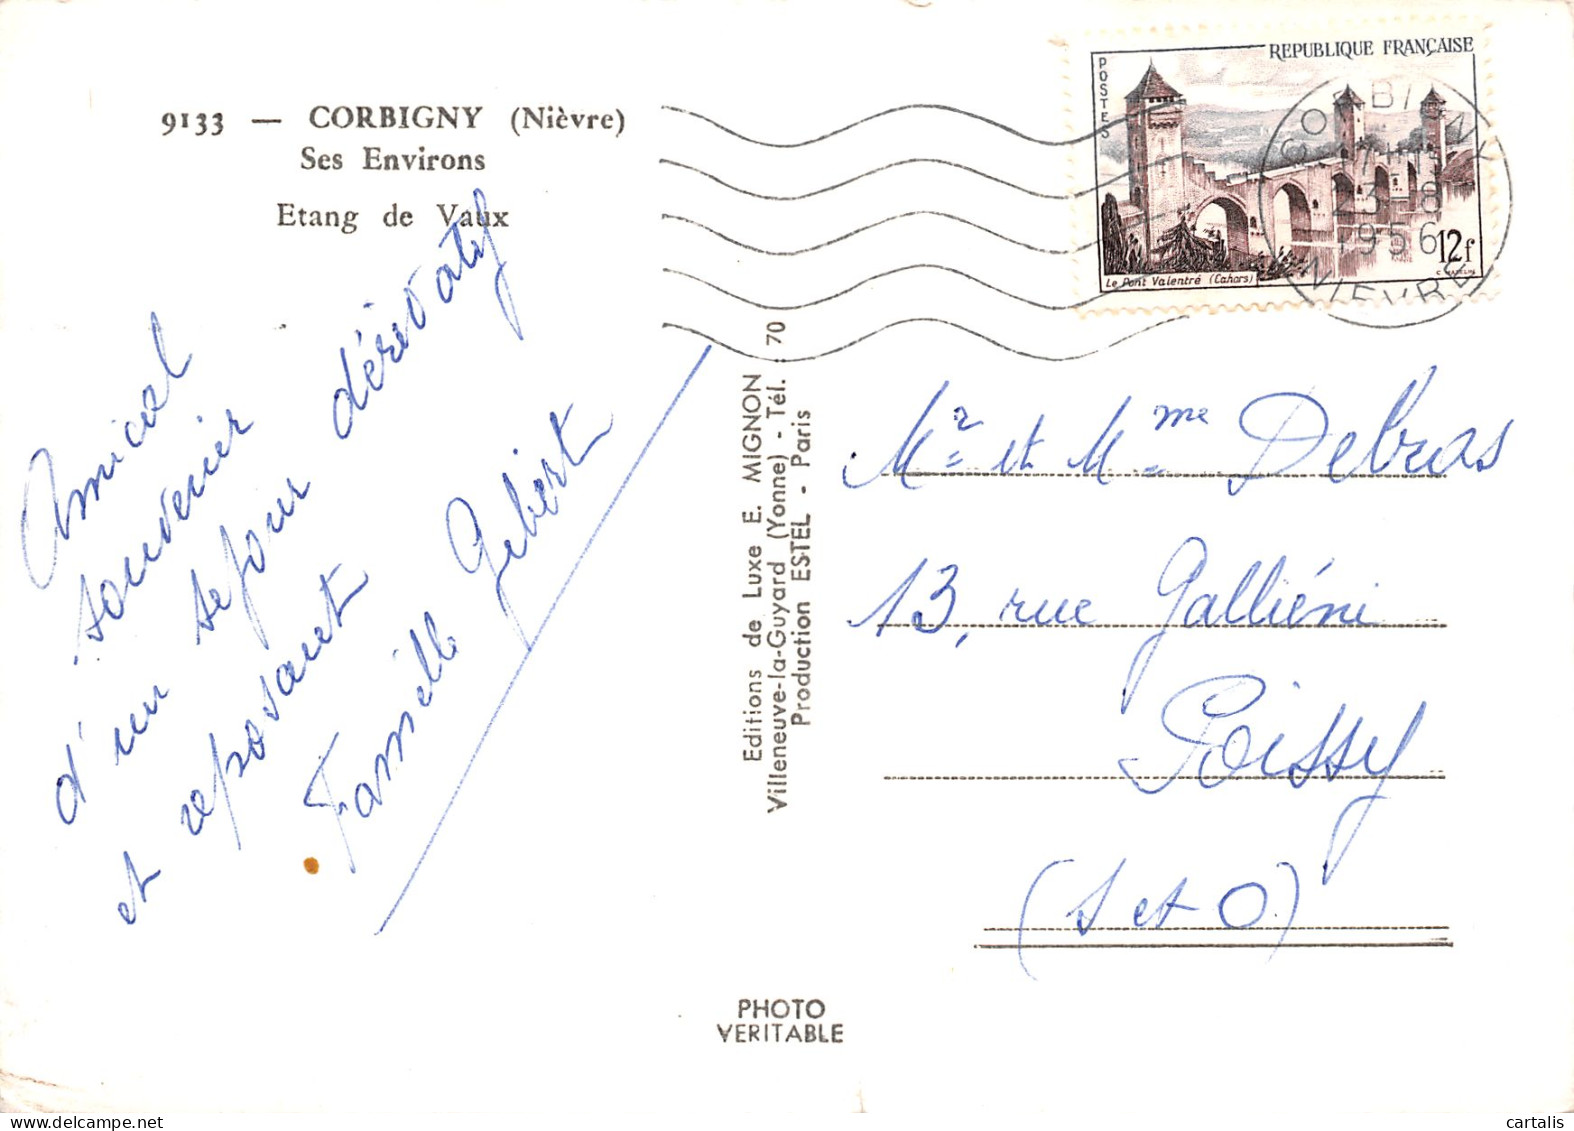 9133 — CORBIGNY (Nièvre)
Ses Environs
Etang de Vaux
REPUBLIQUE FRANÇAISE
POSTES
12f
Le Pont Valentré (Cahors)
CORBIGNY
23-8
1956
NIEVRE
Amical
souvenir
d'un séjour dérivatif
et reposant
Famille Gibert
Editions de Luxe E. MIGNON
Villeneuve-la-Guyard (Yonne) - Tél. : 70
Production ESTEL - Paris
Mr et Mme Debras
13, rue Galliéni
Poissy
(S et O)
PHOTO
VERITABLE
https://www.cartalis.com